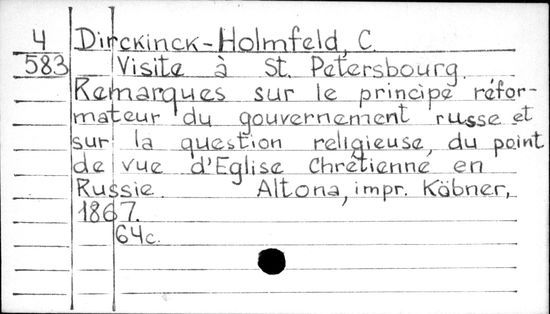 4 Dirckinck-Holmfeld, C.
583 Visite à St. Petersbourg.
Remarques sur le principe réfor-
mateur du gouvernement russe et
sur la question religieuse, du point
de vue d'Eglise Chrétienne en
Russie. Altona, impr. Köbner,
1867.
64c.